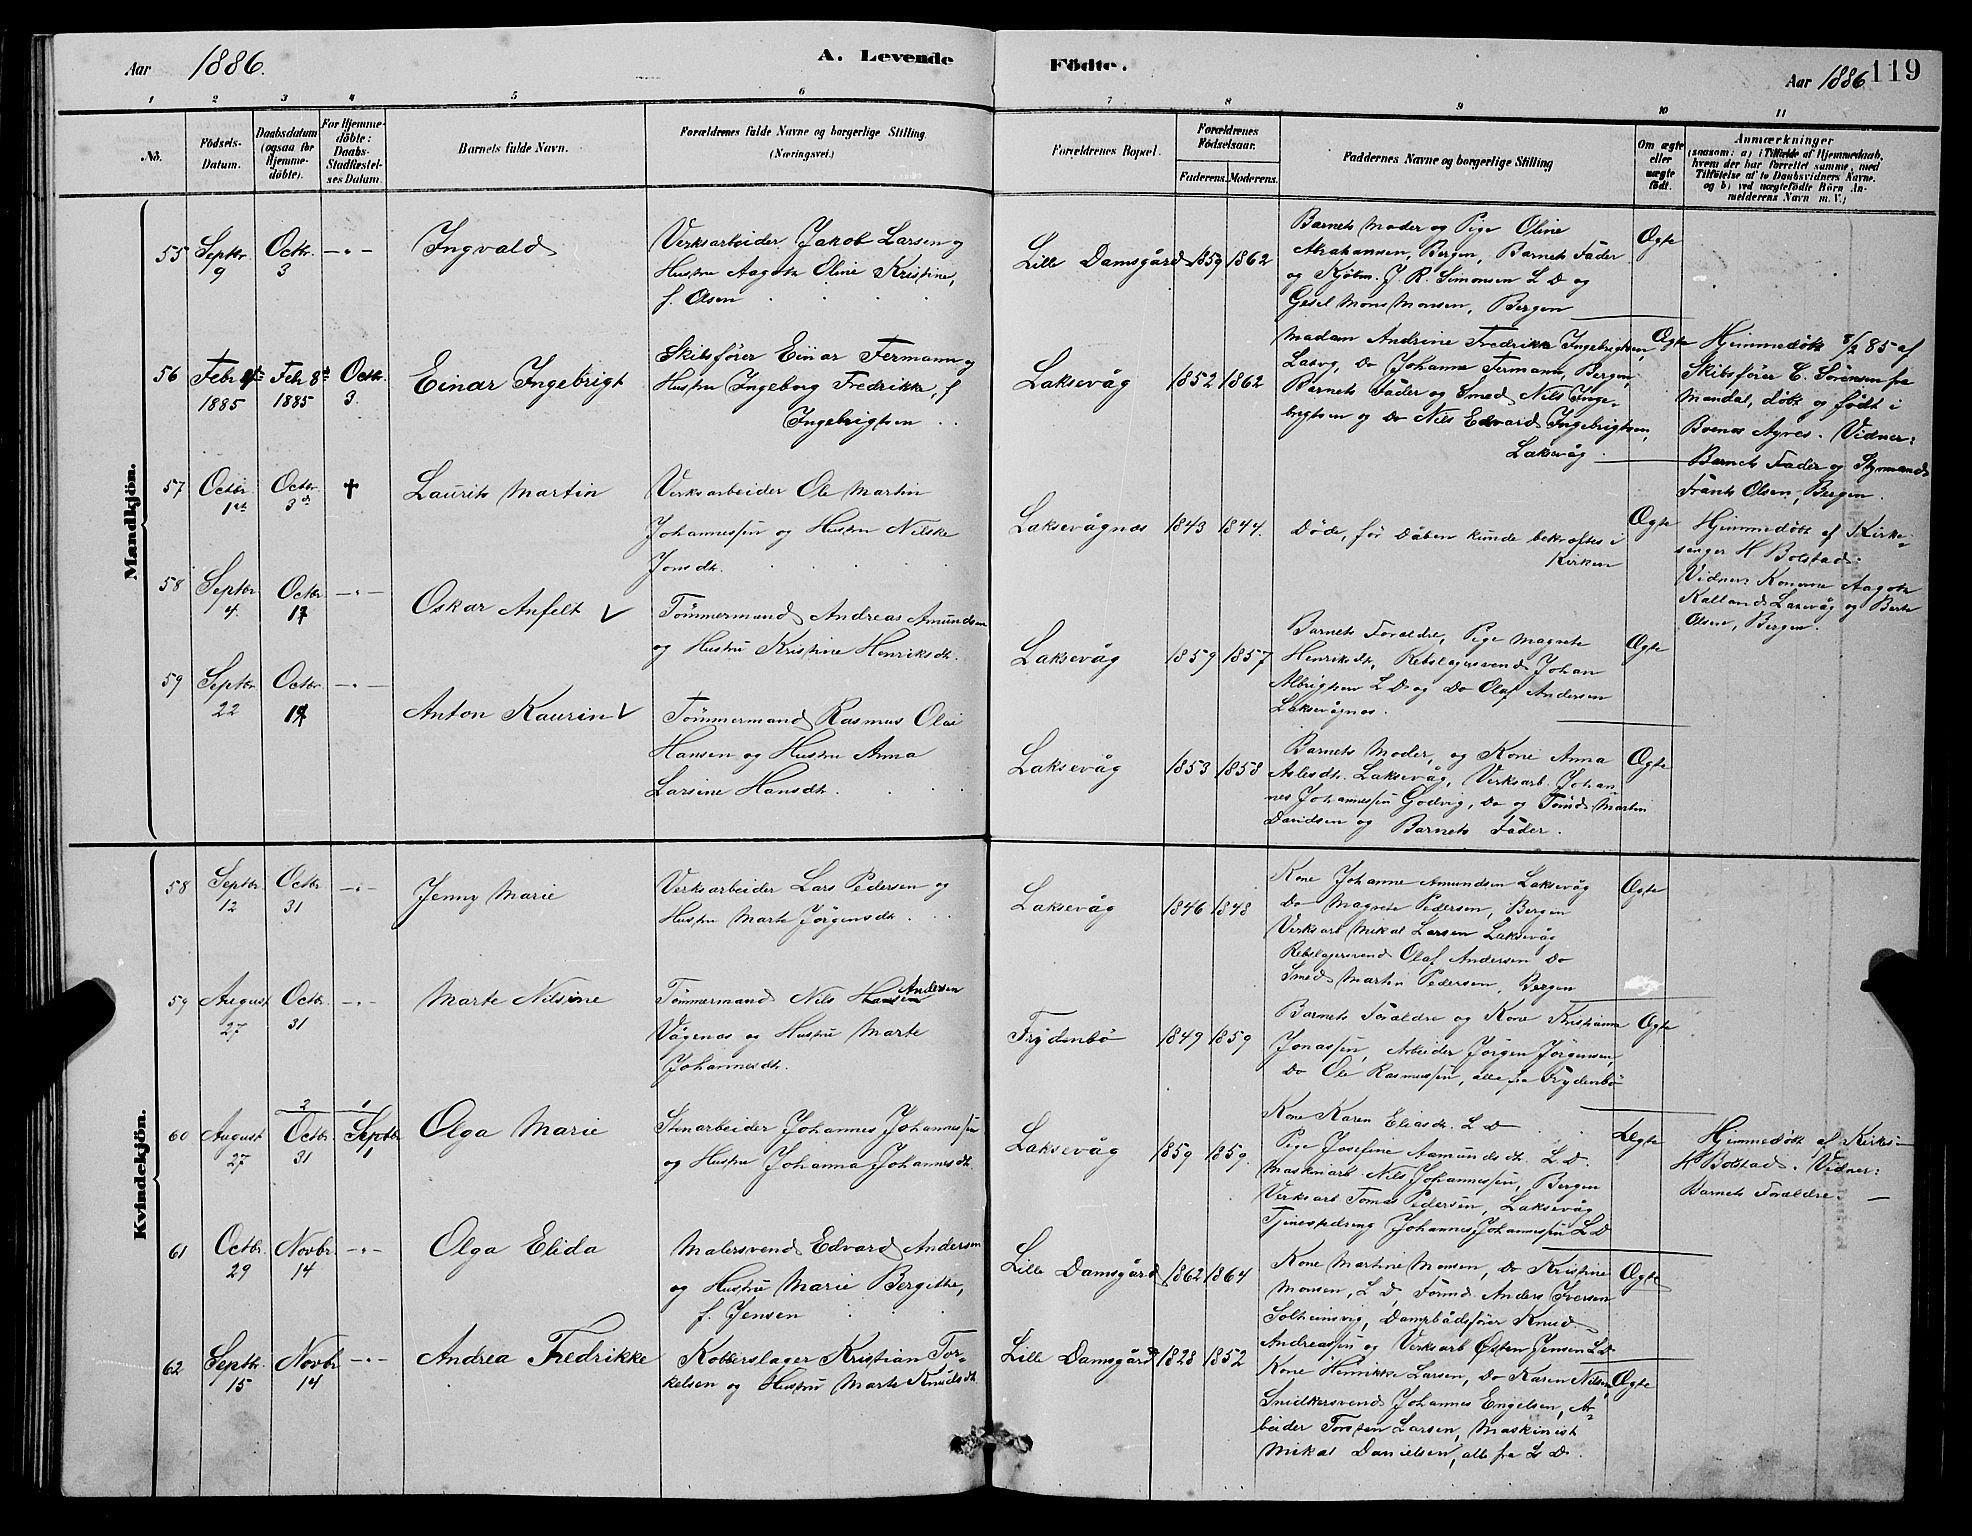 Aar 1886.
A. Levende Födte.
Aar 1886 119
1 2 3 4 5 6 7 8 9 10 11
No.
Födsels-
Datum.
Daabsdatum
(ogsaa for
Hjemme-
döbte).
For Hjemme-
döbte:
Daabs-
Stadfæstel-
ses Datum.
Barnets fulde Navn.
Forældrenes fulde Navne og borgerlige Stilling.
(Næringsvei.)
Forældrenes Bopæl.
Forældrenes
Fødselsaar.
Faderens. Moderens.
Faddernes Navne og borgerlige Stilling
Om ægte
eller
uægte
födt.
Anmærkninger
(saasom: a) i Tilfælde af Hjemmedaab,
hvem der har forrettet samme, med
Tilföielse af to Daabsvidners Navne.
og b) ved uægtefödte Börn An-
melderens Navn m. V.;
Mandkjön.
55 Septbr. 9
Octbr. 3
-"-
Ingvald
Verksarbeider Jakob Larsen og
Hustru Aagote Oline Kristine,
f. Olsen
Lille Damsgård 1859 1862
Barnets Moder og Pige Oline
Abrahamsen, Bergen, Barnets Fader
og Kjøbm. J. R. Simonsen L D og
Gesel Mons Monsen, Bergen
Ægte
56 Febr 1885
Feb 8de 1885
Octbr. 3
Einar Ingebrigt
Skibsfører Einar Fermann og
Hustru Ingeborg Fredrikke, f
Ingebrigtsen
Laksevåg 1852 1862
Madam Andrine Fredrikke Ingebrigtsen,
Laxvg, Do Johanna Fermann, Bergen,
Barnets Fader og Smed Nils Inge-
brigtsen og Do Nils Edvard Ingebrigtsen,
Laksevåg.
Ægte
Hjemmedøbt 8/2 85 af
Skibsfører C. Sørensen fra
Mandal, døbt og født i
Buenos Ayres. Vidner:
Barnets Fader og Styrmand
Frants Olsen, Bergen.
57 Octbr. 1st
Octbr. 3de
†
Laurits Martin
Verksarbeider Ole Martin
Johannessen og Hustru Nilske
Jonsdt.
Laksevågnæs 1843 1844.
Døde, før Dåben kunde bekræftes i
Kirken
Ægte
Hjemmedøbt af Kirke-
sanger H Bolstad.
Vidner: Konerne Aagote
Kalland, Laksevåg og Berte
Olsen, Bergen.
58 Septbr. 4
Octbr. 17
-"-
Oskar Anfelt V
Tømmermand Andreas Amundsen
og Hustru Kristine Henriksdt.
Laksevåg 1859 1857
Barnets Forældre, Pige Magrete
Henriksdt, Rebslagersvend Johan
Albrigtsen L D og Do Olaf Andersen
Laksevågnæs.
Ægte
59 Septbr. 22
Octbr. 17
-"-
Anton Kaurin V
Tømmermand Rasmus Olai
Hansen og Hustru Anna
Larsine Hansdt.
Laksevåg 1853 1858
Barnets Moder, og Kone Anna
Aslesdt. Laksevåg, Verksarb. Johan-
nes Johannessen Godvig, Do og Tømd. Martin
Davidsen og Barnets Fader.
Ægte
Kvindekjön.
58 Septbr. 12
Octbr. 31
-"-
Jenny Marie
Verksarbeider Lars Pedersen og
Hustru Marte Jörgensdt.
Laksevåg 1846 1848
Kone Johanne Amundsen Laksevåg
Do Magrete Pedersen, Bergen
Verksarb Mikal Larsen Laksevåg
Rebslagersvend Olaf Andersen Do
Smed Martin Pedersen, Bergen
Ægte
59 August 27
Octbr. 31
-"-
Marte Nilsine
Tømmermand Nils Hansen Andersen
Vågenæs og Hustru Marte
Johannesdt.
Frydenbø 1849 1859
Barnets Forældre og Kone Kristianna
Jonassen, Arbeider Jørgen Jørgensen,
Do Ole Rasmussen, alle fra Frydenbø
Ægte
60 August 27
2 Octbr. 31
1 Septbr 1
Olga Marie
Stenarbeider Johannes Johannessen
og Hustru Johanna Johannesdt.
Laksevåg 1859 1859.
Kone Karen Eliasdt. L D
Pige Josefine Aamundsdt. L D.
Maskinarb. Nils Johannessen, Bergen
Verksarb Tomas Pedersen, Laksevåg
Tjenestedreng Johannes Johannessen L D
Ægte
Hjemmedøbt af Kirkes-
H Bolstad. Vidner:
Barnets Forældre. —
61 Octbr. 29
Novbr 14
-"-
Olga Elida
Malersvend Edvard Andersen
og Hustru Marie Bergitte,
f. Jensen
Lille Damsgård 1862 1864
Kone Martine Monsen, Do Kristine
Monsen, L D, Tömmd. Anders Iversen
Solheimsvig, Dampbådsfører Knud
Andreassen og Verksarb Østen Jensen L D
Ægte
62 Septbr. 15
Novbr 14
-"-
Andrea Fredrikke
Kobberslager Kristian Tor-
kelsen og Hustru Marte Knudsdt.
Lille Damsgård 1828 1852
Kone Henrikke Larsen, Do Karen Nilsen,
Snidkersvend Johannes Engelsen, Ar-
beider Torsten Larsen, Maskinist
Mikal Danielsen, alle fra L D.
Ægte